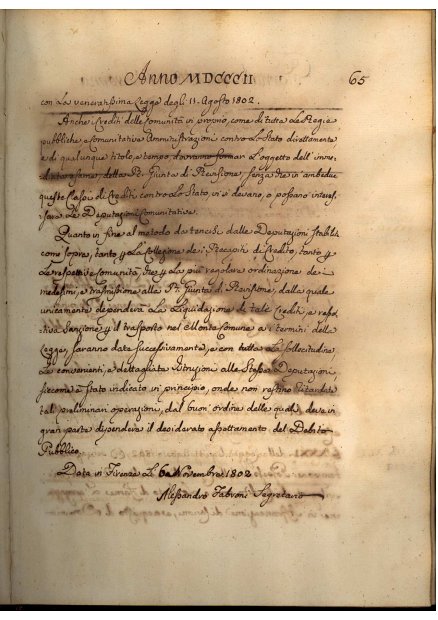 Anno MDCCCII 65
con la veneratissima Legge degli 11. Agosto 1802.
Anche i Crediti delle Comunità in proprio, come di tutte le Regie
pubbliche, e Comunitative Amministrazioni contro lo Stato direttamente
e di qualunque titolo, e tempo, dovranno formar l'oggetto dell'
della Pa. Giunta di Revisione, senza che in ambedue
queste Classi di Crediti contro lo Stato, vi devano, o possano
le Deputazioni Comunitative.
Quanto in fine al metodo da tenersi dalle Deputazioni stabilite
come sopra, tanto p la Collezione dei Recapiti di Credito, tanto p
le respettive Comunità, che p la più regolare ordinazione dei
medesimi, e trasmissione alla Pa. Giunta di Revisione, dalla quale
unicamente dependerà la Liquidazione di tali Crediti, e
Sanzione p il trasporto nel Monte Comune a i termini della
Legge, saranno date successivamente, e con tutta la sollecitudine
le convenienti, e dettagliate Istruzioni alle Stesse Deputazioni,
siccome è stato indicato in principio, onde non restino ritardate
tali preliminari operazioni, dal buon'ordine delle quali deve in
gran parte dependere il desiderato assettamento del Debito
Pubblico.
Data in Firenze li 6. Novembre 1802
Alessandro Fabroni Segretario